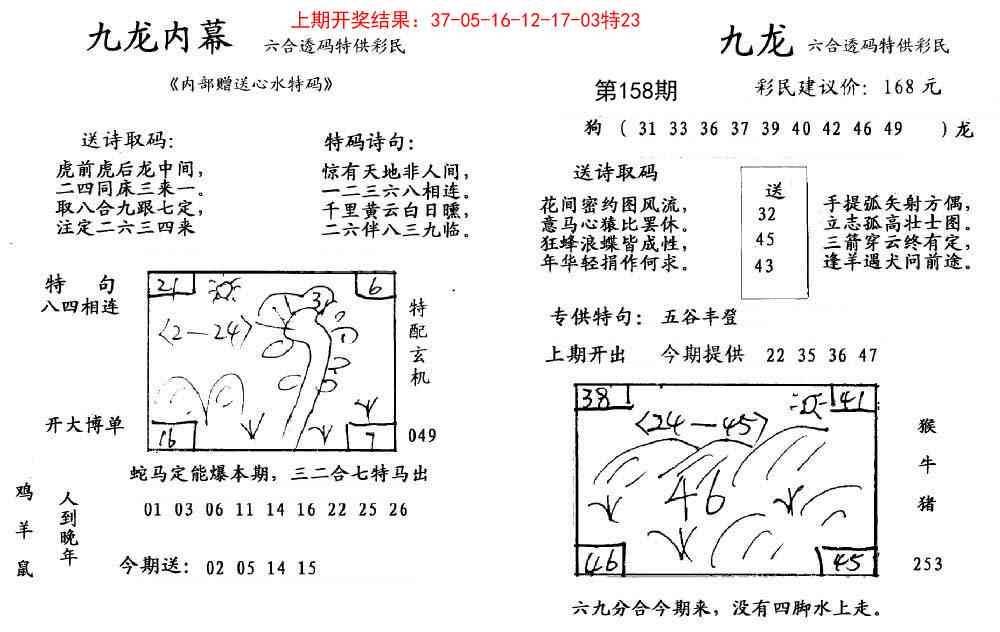 上期开奖结果：37-05-16-12-17-03特23
九龙内幕 六合透码特供彩民
《内部赠送心水特码》
送诗取码：
虎前虎后龙中间，
二四同床三来一。
取八合九跟七定，
注定二六三四来
特码诗句：
惊有天地非人间，
一二三六八相连。
千里黄云白日曛，
二六伴八三九临。
特 句
八四相连
开大博单
21
6
3
<2—24>
16
7
特配玄机
049
蛇马定能爆本期，三二合七特马出
鸡羊鼠
人到晚年
01 03 06 11 14 16 22 25 26
今期送：02 05 14 15
九龙 六合透码特供彩民
第158期 彩民建议价：168元
狗（31 33 36 37 39 40 42 46 49 ）龙
送诗取码
花间密约图风流，
意马心猿比罢休。
狂蜂浪蝶皆成性，
年华轻捐作何求。
送
32
45
43
手提弧矢射方偶，
立志孤高壮士图。
三箭穿云终有定，
逢羊遇犬问前途。
专供特句：五谷丰登
上期开出 今期提供 22 35 36 47
38
41
<24—45>
46
46
45
猴牛猪
253
六九分合今期来，没有四脚水上走。